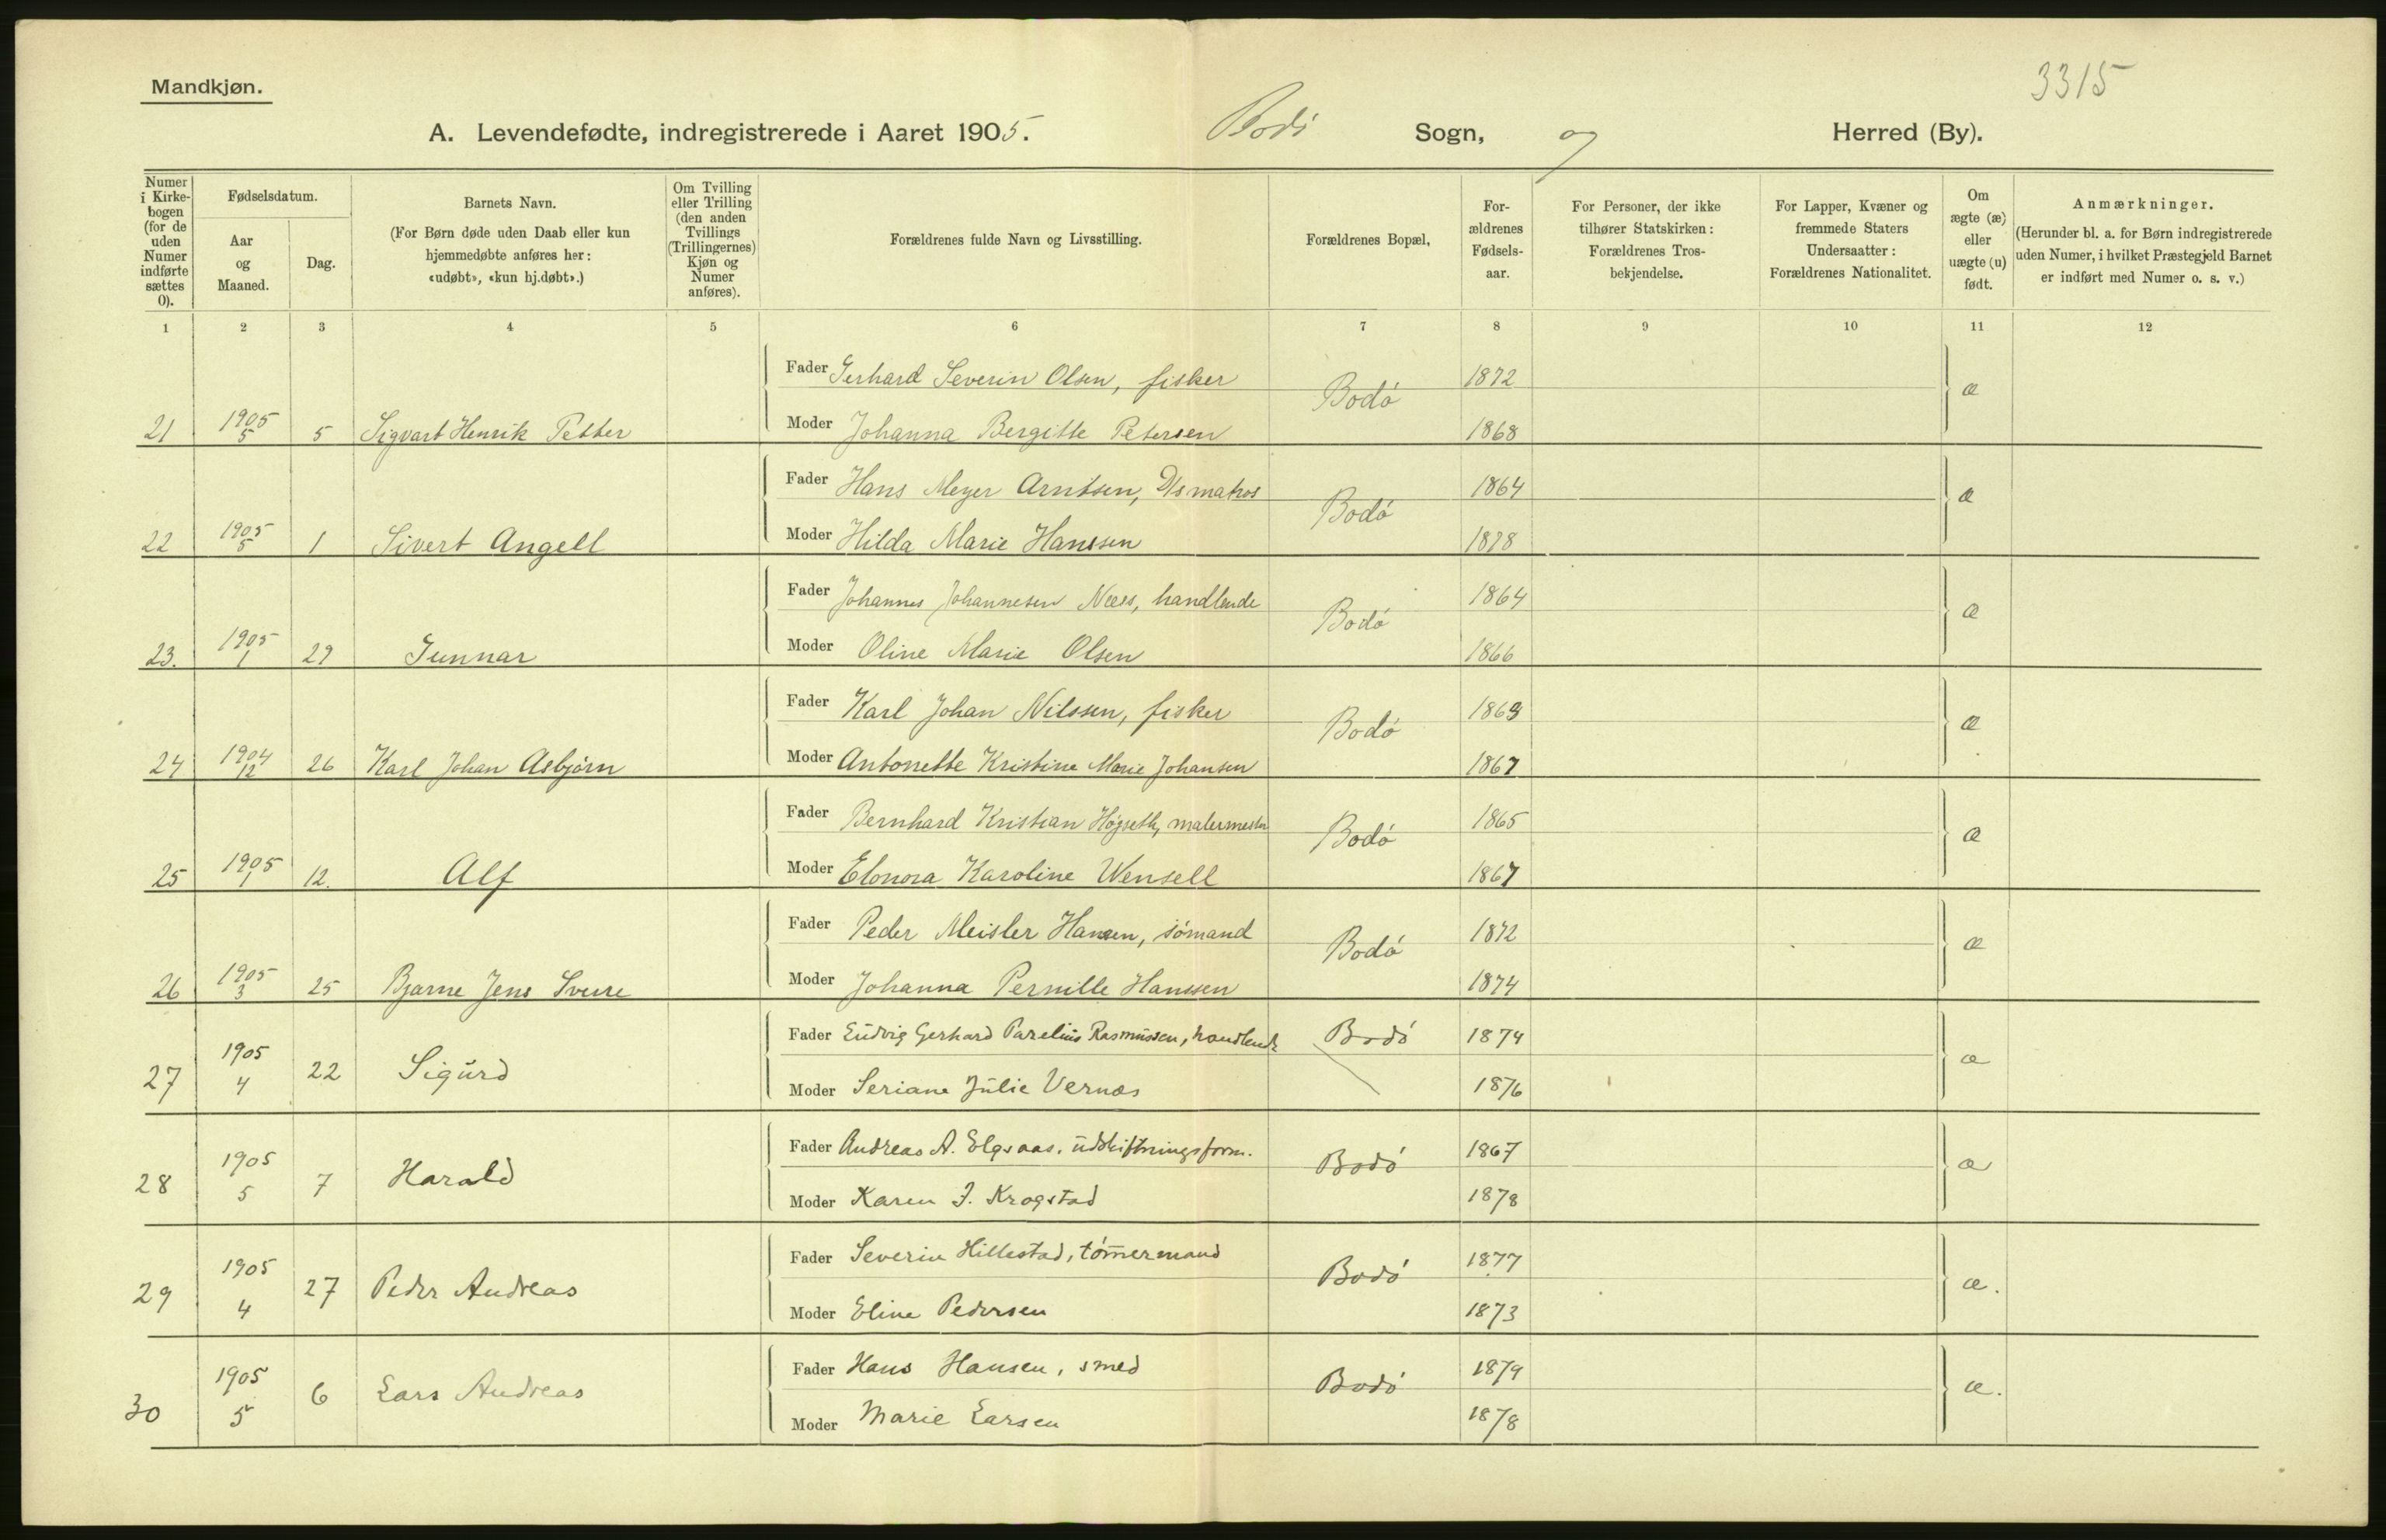 Mandkjøn.
3315
A. Levendefødte, indregistrerede i Aaret 1905. Bodö Sogn, og Herred (By).
Numer i Kirke-bogen (for de uden Numer indførte sættes 0).
Fødselsdatum.
Aar og Maaned.
Dag.
Barnets Navn.
(For Børn døde uden Daab eller kun hjemmedøbte anføres her: «udøbt», «kun hj.døbt».)
Om Tvilling eller Trilling (den anden Tvillings (Trillingernes) Kjøn og Numer anføres).
Forældrenes fulde Navn og Livsstilling.
Forældrenes Bopæl,
For-ældrenes Fødsels-aar.
For Personer, der ikke tilhører Statskirken: Forældrenes Tros-bekjendelse.
For Lapper, Kvæner og fremmede Staters Undersaatter: Forældrenes Nationalitet.
Om ægte (æ) eller uægte (u) født.
Anmærkninger.
(Herunder bl. a. for Børn indregistrerede uden Numer, i hvilket Præstegjeld Barnet er indført med Numer o. s. v.)
1 2 3 4 5 6 7 8 9 10 11 12
Fader Gerhard Severin Olsen, fisker Bodö 1872 æ
21 1905 5 5 Sigvart Henrik Petter Moder Johanna Bergitte Petersen 1868
Fader Hans Meyer Arntsen, D/s matros Bodö 1864 æ
22 1905 5 1 Sivert Angell Moder Hilda Marie Hanssen 1878
Fader Johannes Johannesen Næss, handlende Bodö 1864 æ
23. 1905 1 29 Gunnar Moder Oline Marie Olsen 1866
Fader Karl Johan Nilssen, fisker Bodö 1869 æ
24 1904 12 26 Karl Johan Asbjörn Moder Antonette Kristine Marie Johansen 1867
Fader Bernhard Kristian Høgseth, malermester Bodö 1865 æ
25 1905 1 12. Alf Moder Elonora Karoline Wensell 1867
Fader Peder Meisler Hansen, sömand Bodö 1872 æ
26 1905 3 25 Bjarne Jens Sverre Moder Johanna Pernille Hanssen 1874
Fader Ludvig Gerhard Parelius Rasmussen, handlende Bodö 1874 æ
27 1905 4 22 Sigurd Moder Seriane Julie Vernæs 1876
Fader Andreas A. Elgsaas, udskiftningsform. Bodö 1867 æ
28 1905 5 7 Harald Moder Karen J. Krogstad 1878
Fader Severin Hillestad, tömmermand Bodö 1877 æ.
29 1905 4 27 Peder Andreas Moder Eline Pedersen 1873
Fader Hans Hansen, smed Bodö 1879 æ.
30 1905 5 6 Lars Andreas Moder Marie Larsen 1878